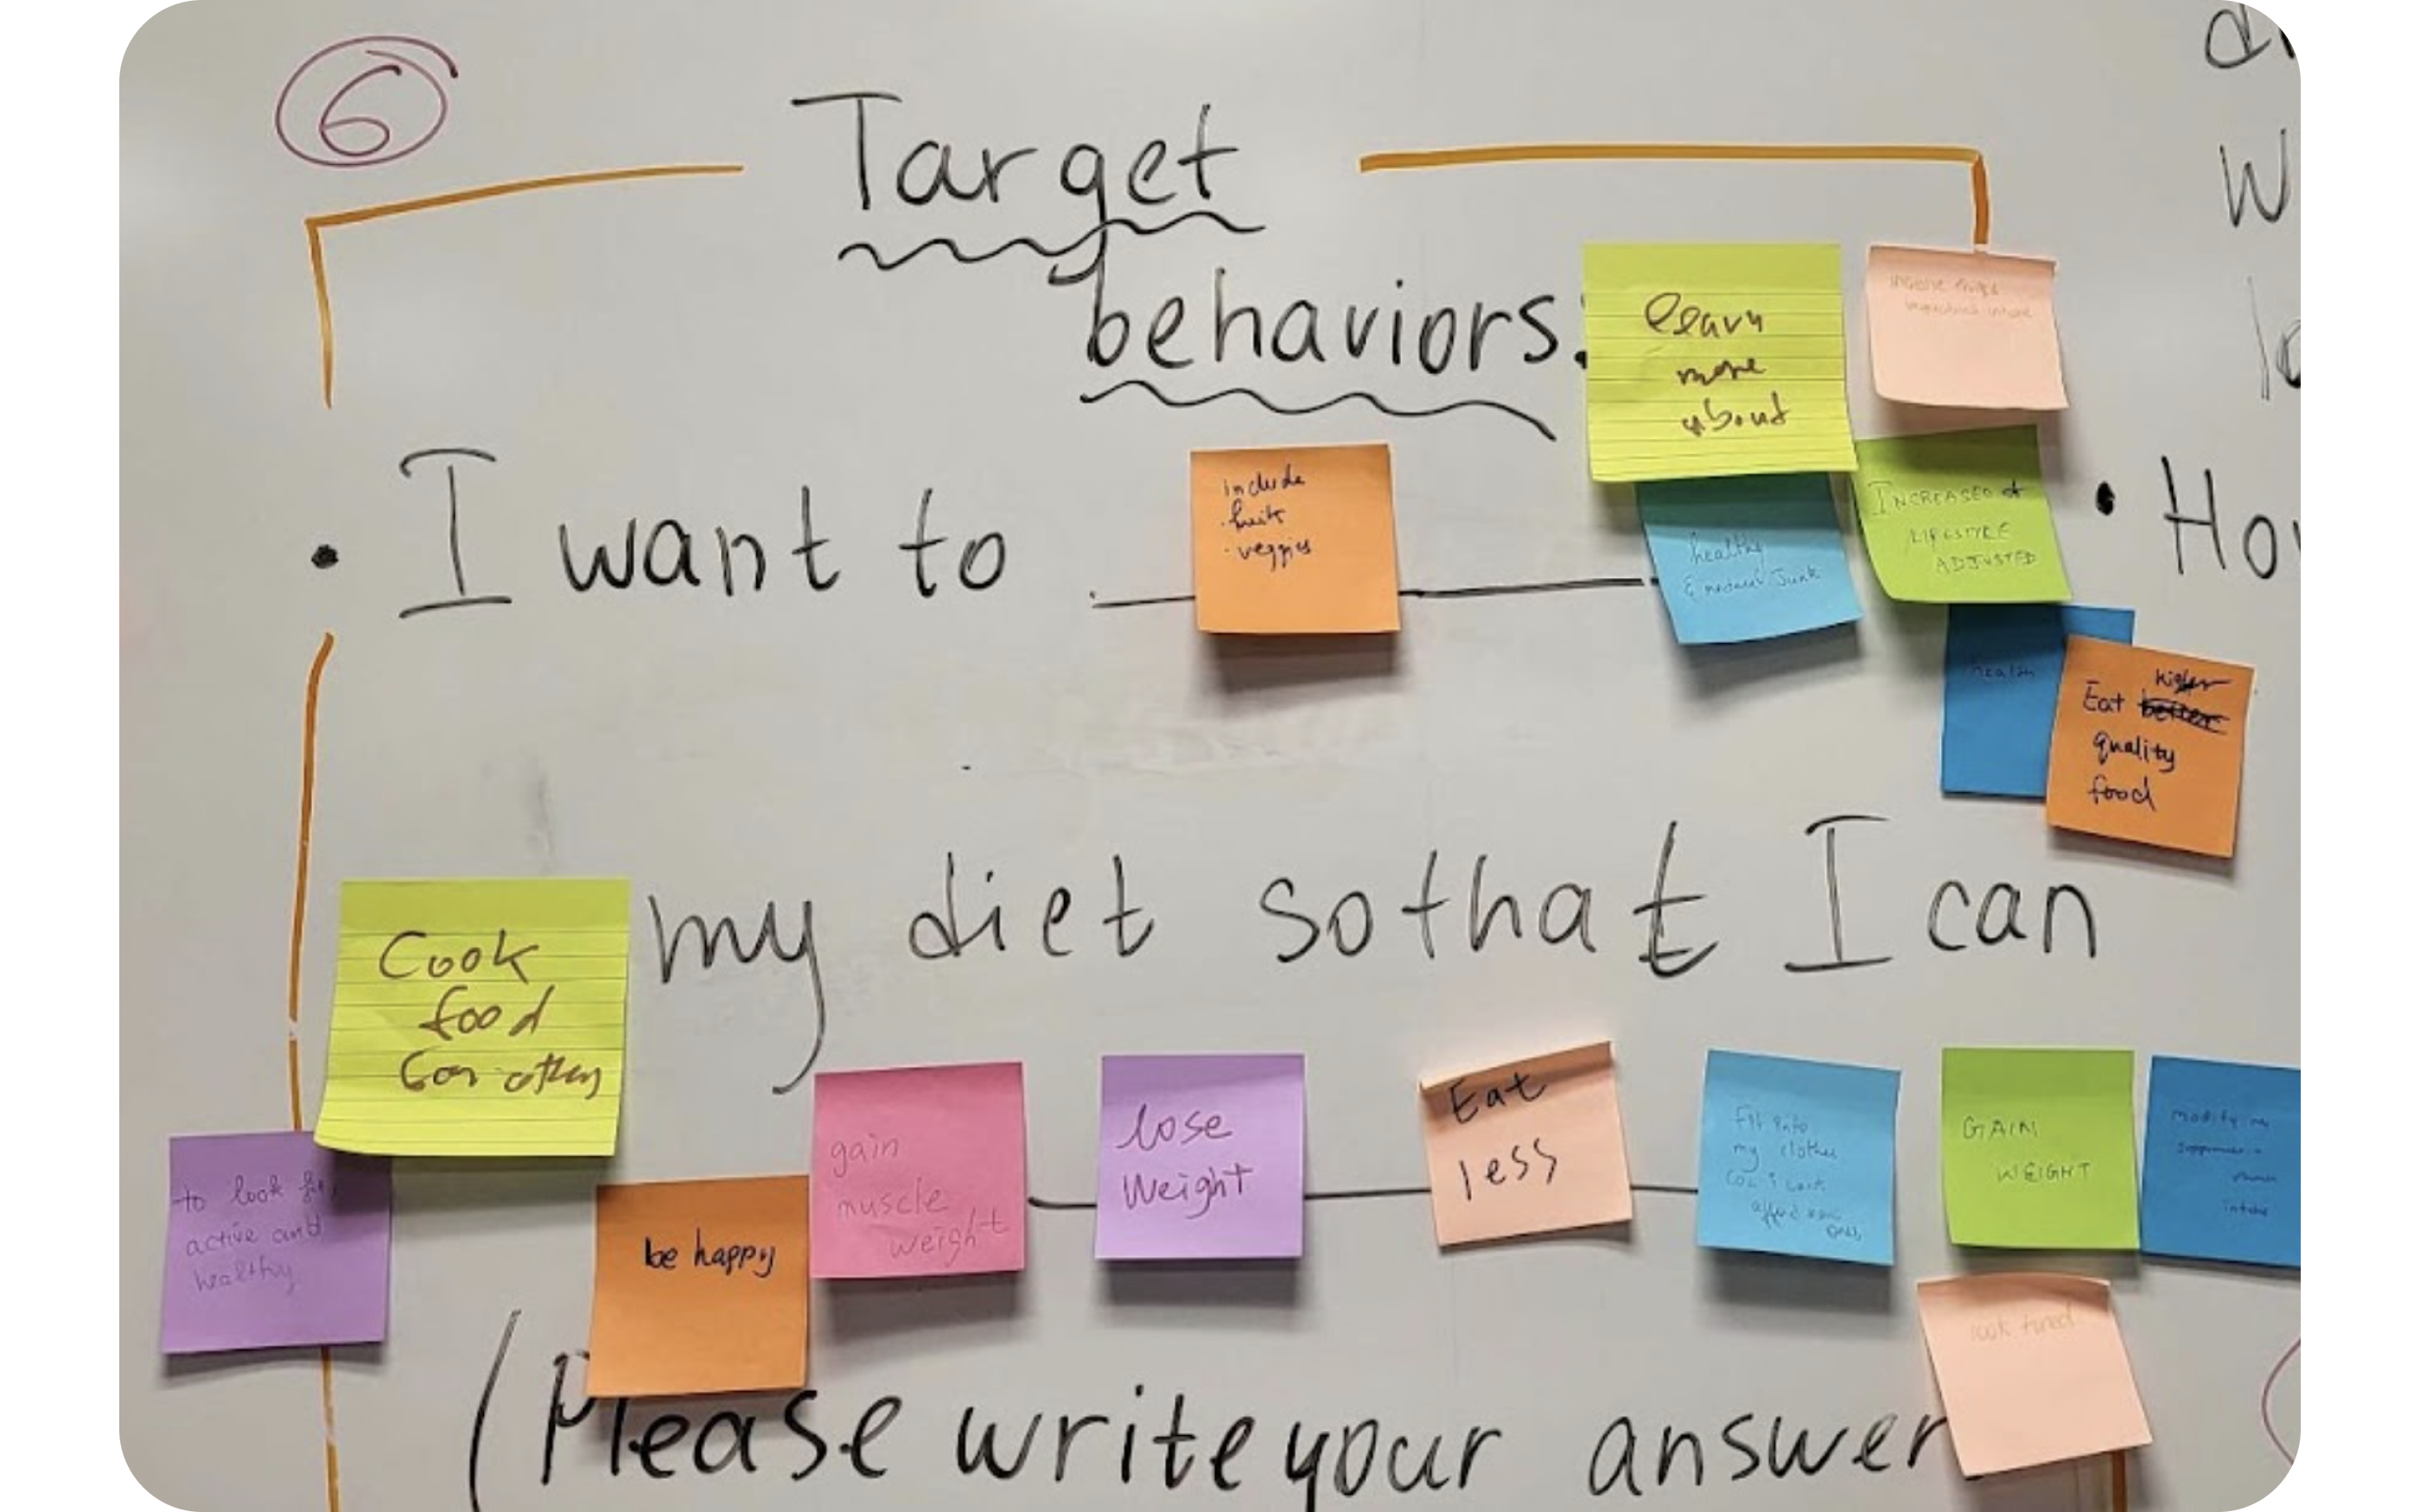 6
Target
behaviors:
learn
more
about
include
fruits
veggies
I want to
healthy
& reduce Junk
INCREASED
LIFESTYLE
ADJUSTED
Ho
health
higher
Eat better
quality
food
my diet so that I can
Cook
food
for others
to look fit,
active and
healthy
be happy
gain
muscle
weight
lose
weight
Eat
less
fit into
my clothes
GAIN
WEIGHT
modify my
intake
look tired
(Please write your answer